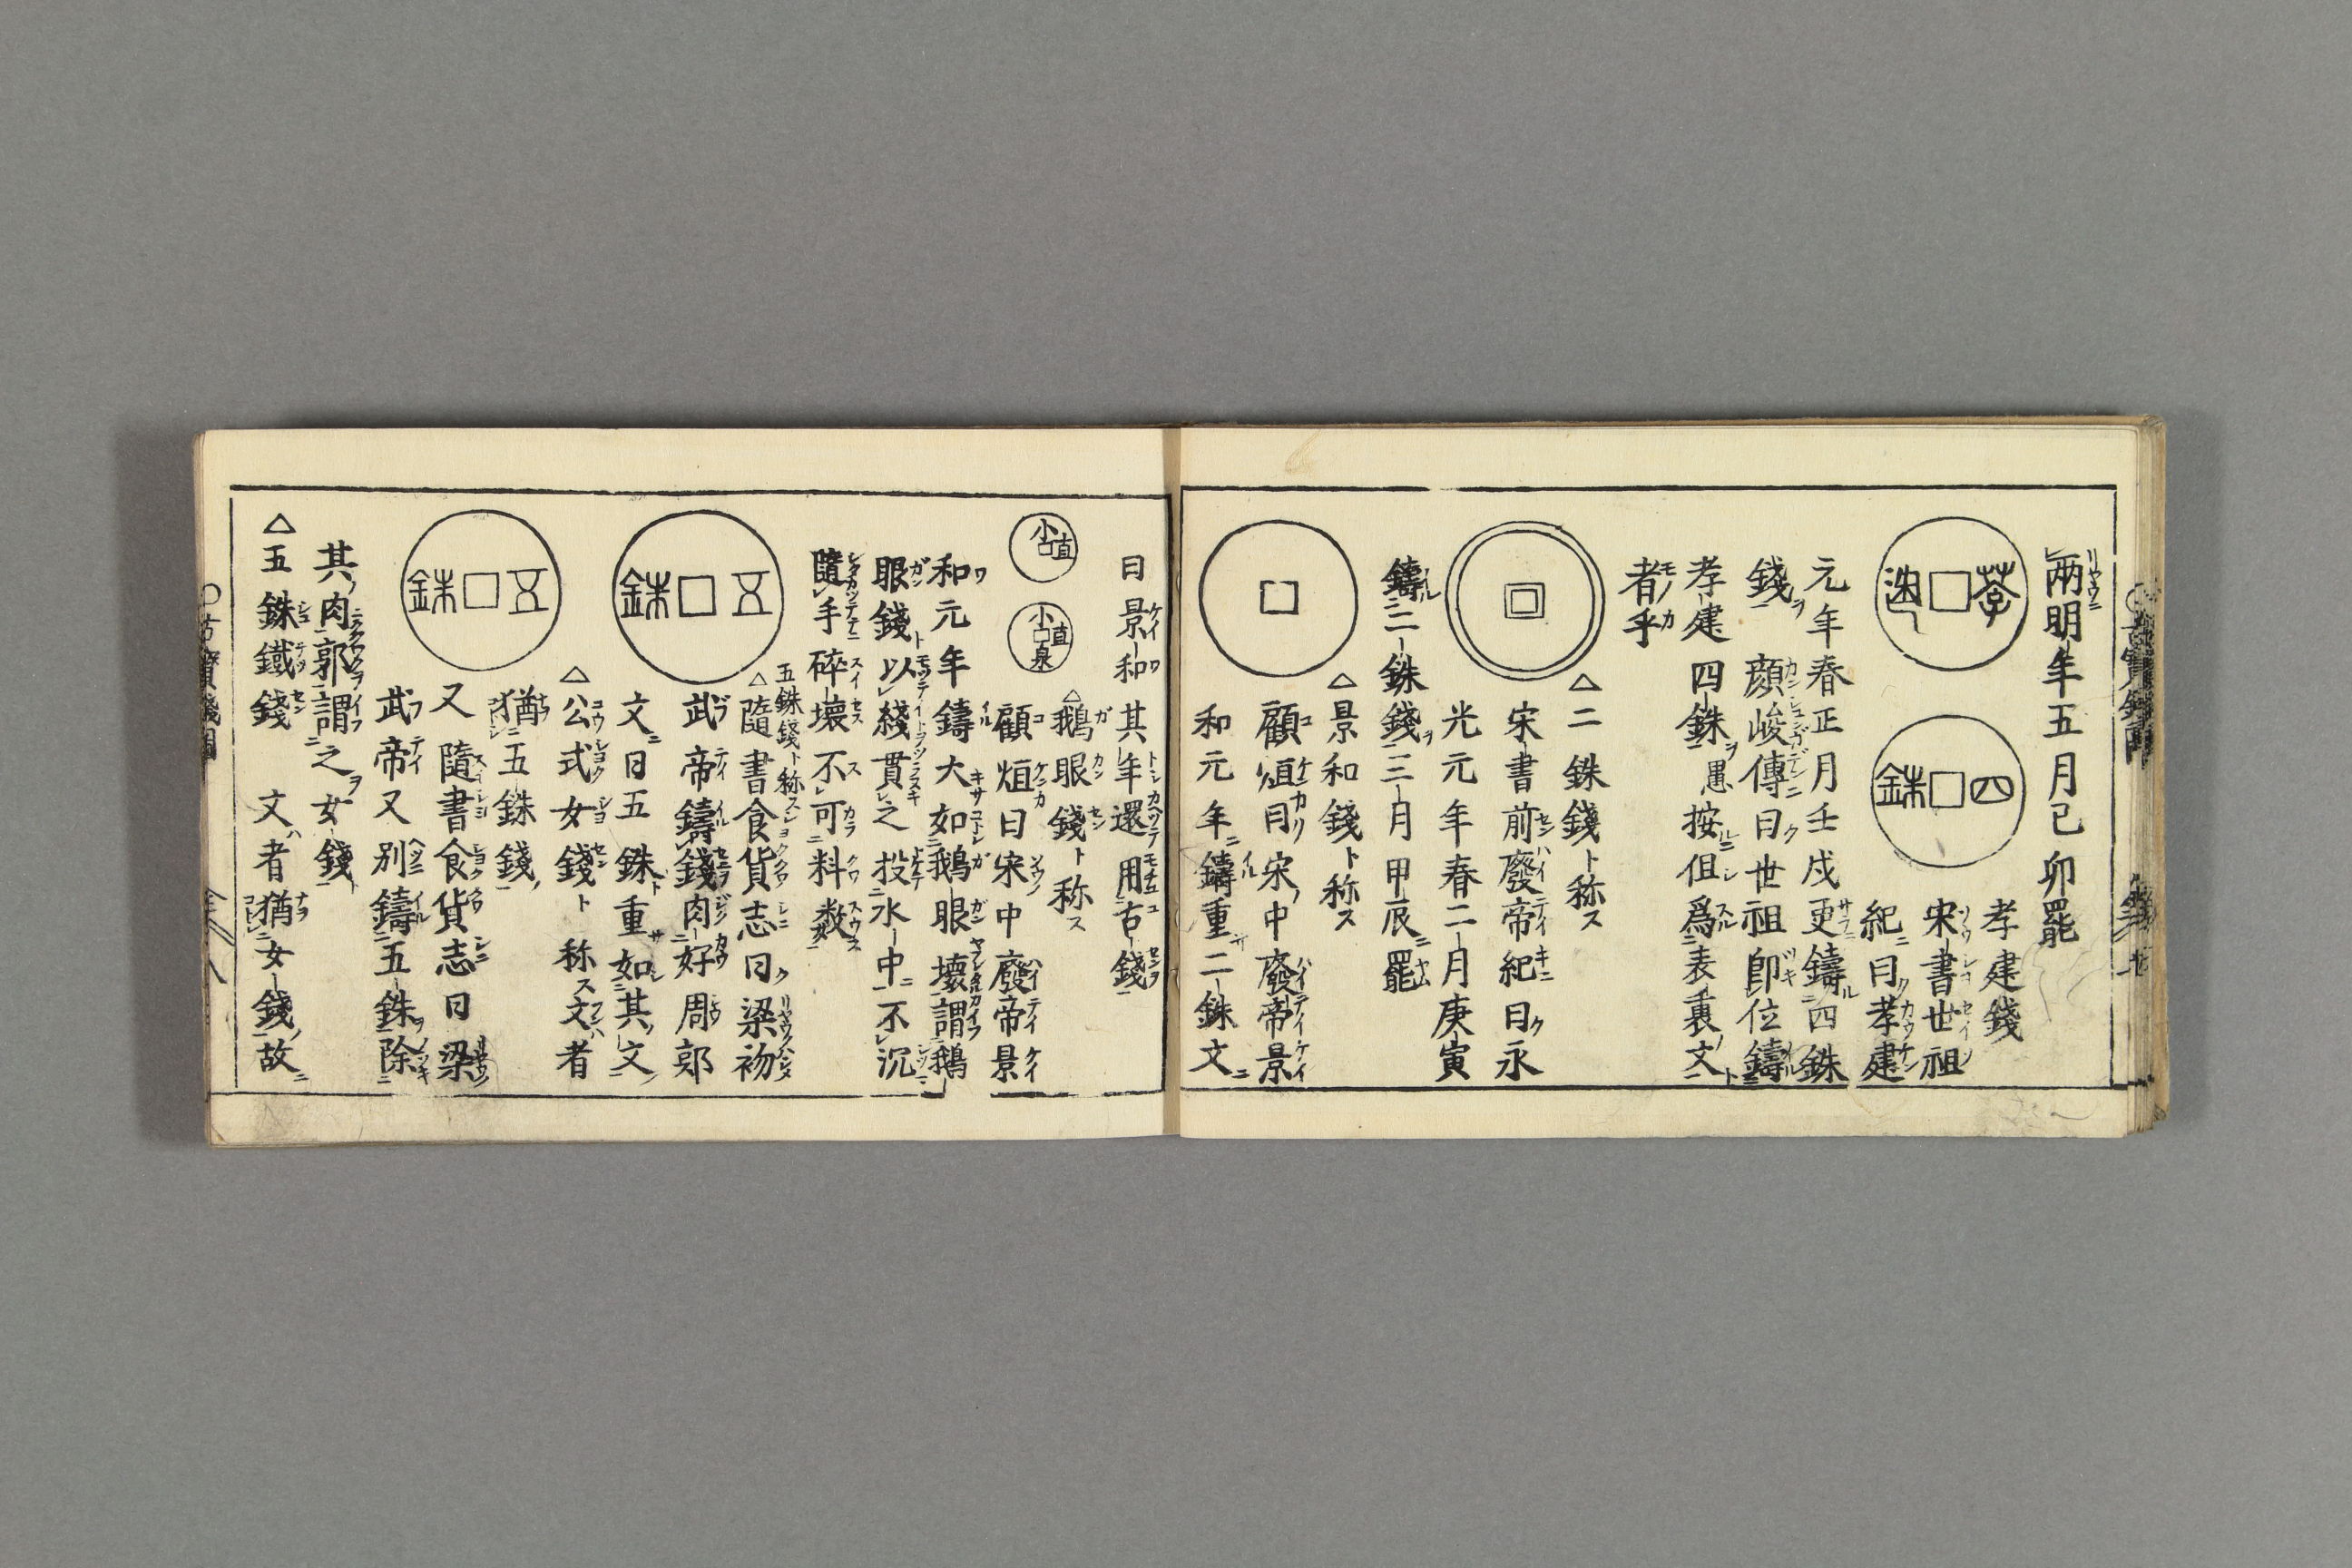 兩明年五月已卯罷
孝建
四銖
孝建錢
宋書世祖
紀曰孝建
元年春正月壬戍更鑄四銖
錢 顔峻傳曰世祖卽位鑄
孝建四銖愚按但爲表裏文
者乎
△二銖錢ト称ス
宋書前廢帝紀曰永
光元年春二月庚寅
鑄二銖錢三月甲辰罷
△景和錢ト称ス
顧烜曰宋中廢帝景
和元年鑄重二銖文
曰景和其年還用古錢
小直
小直泉
△鵝眼錢ト称ス
顧烜曰宋中廢帝景
和元年鑄大如鵝眼壞謂鵝
眼錢以綫貫之投水中不沉
隨手碎壞不可料数
五銖
五銖錢ト称ス
△隨書食貨志曰梁初
武帝鑄錢肉好周郭
文曰五銖重如其文
△公式女錢ト称ス文者
猶五銖錢
五銖
又隨書食貨志曰梁
武帝又別鑄五銖除
其肉郭謂之女錢
△五銖鐵錢 文者猶女錢故